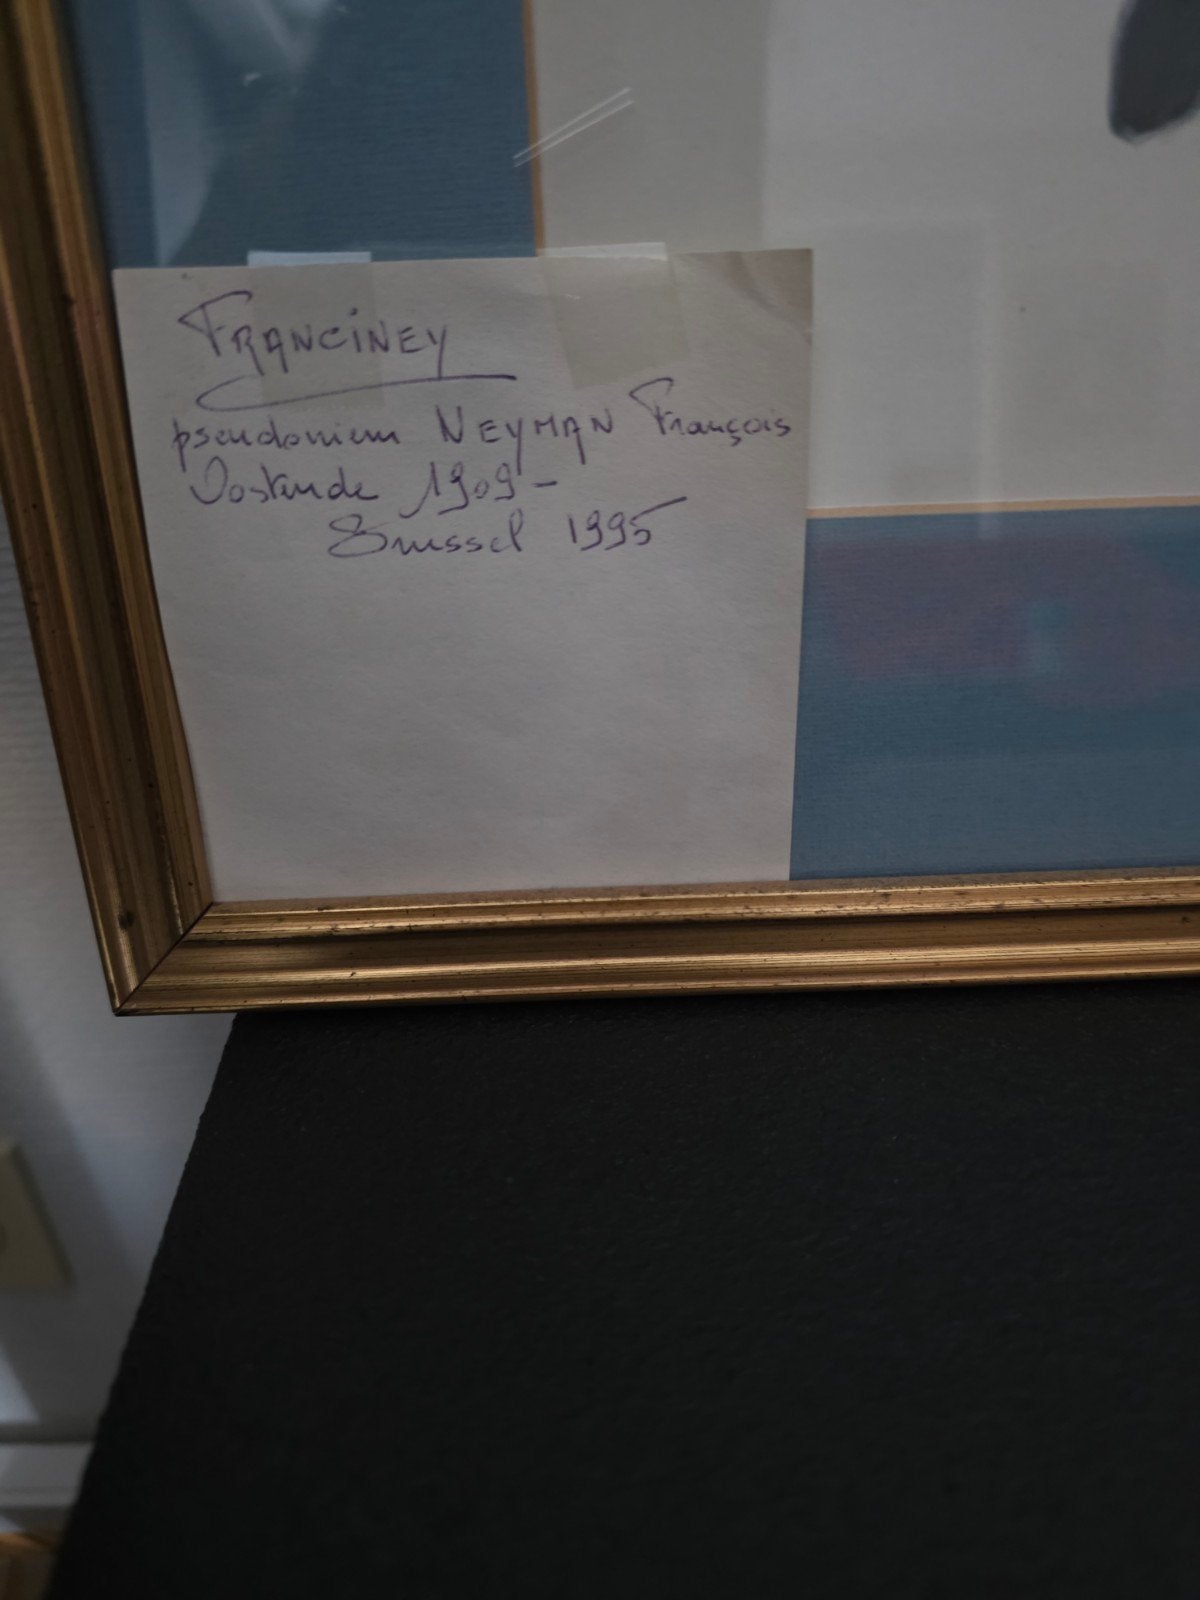 FRANCINEY
pseudoniem NEYMAN François
Oostende 1909 -
Brussel 1995